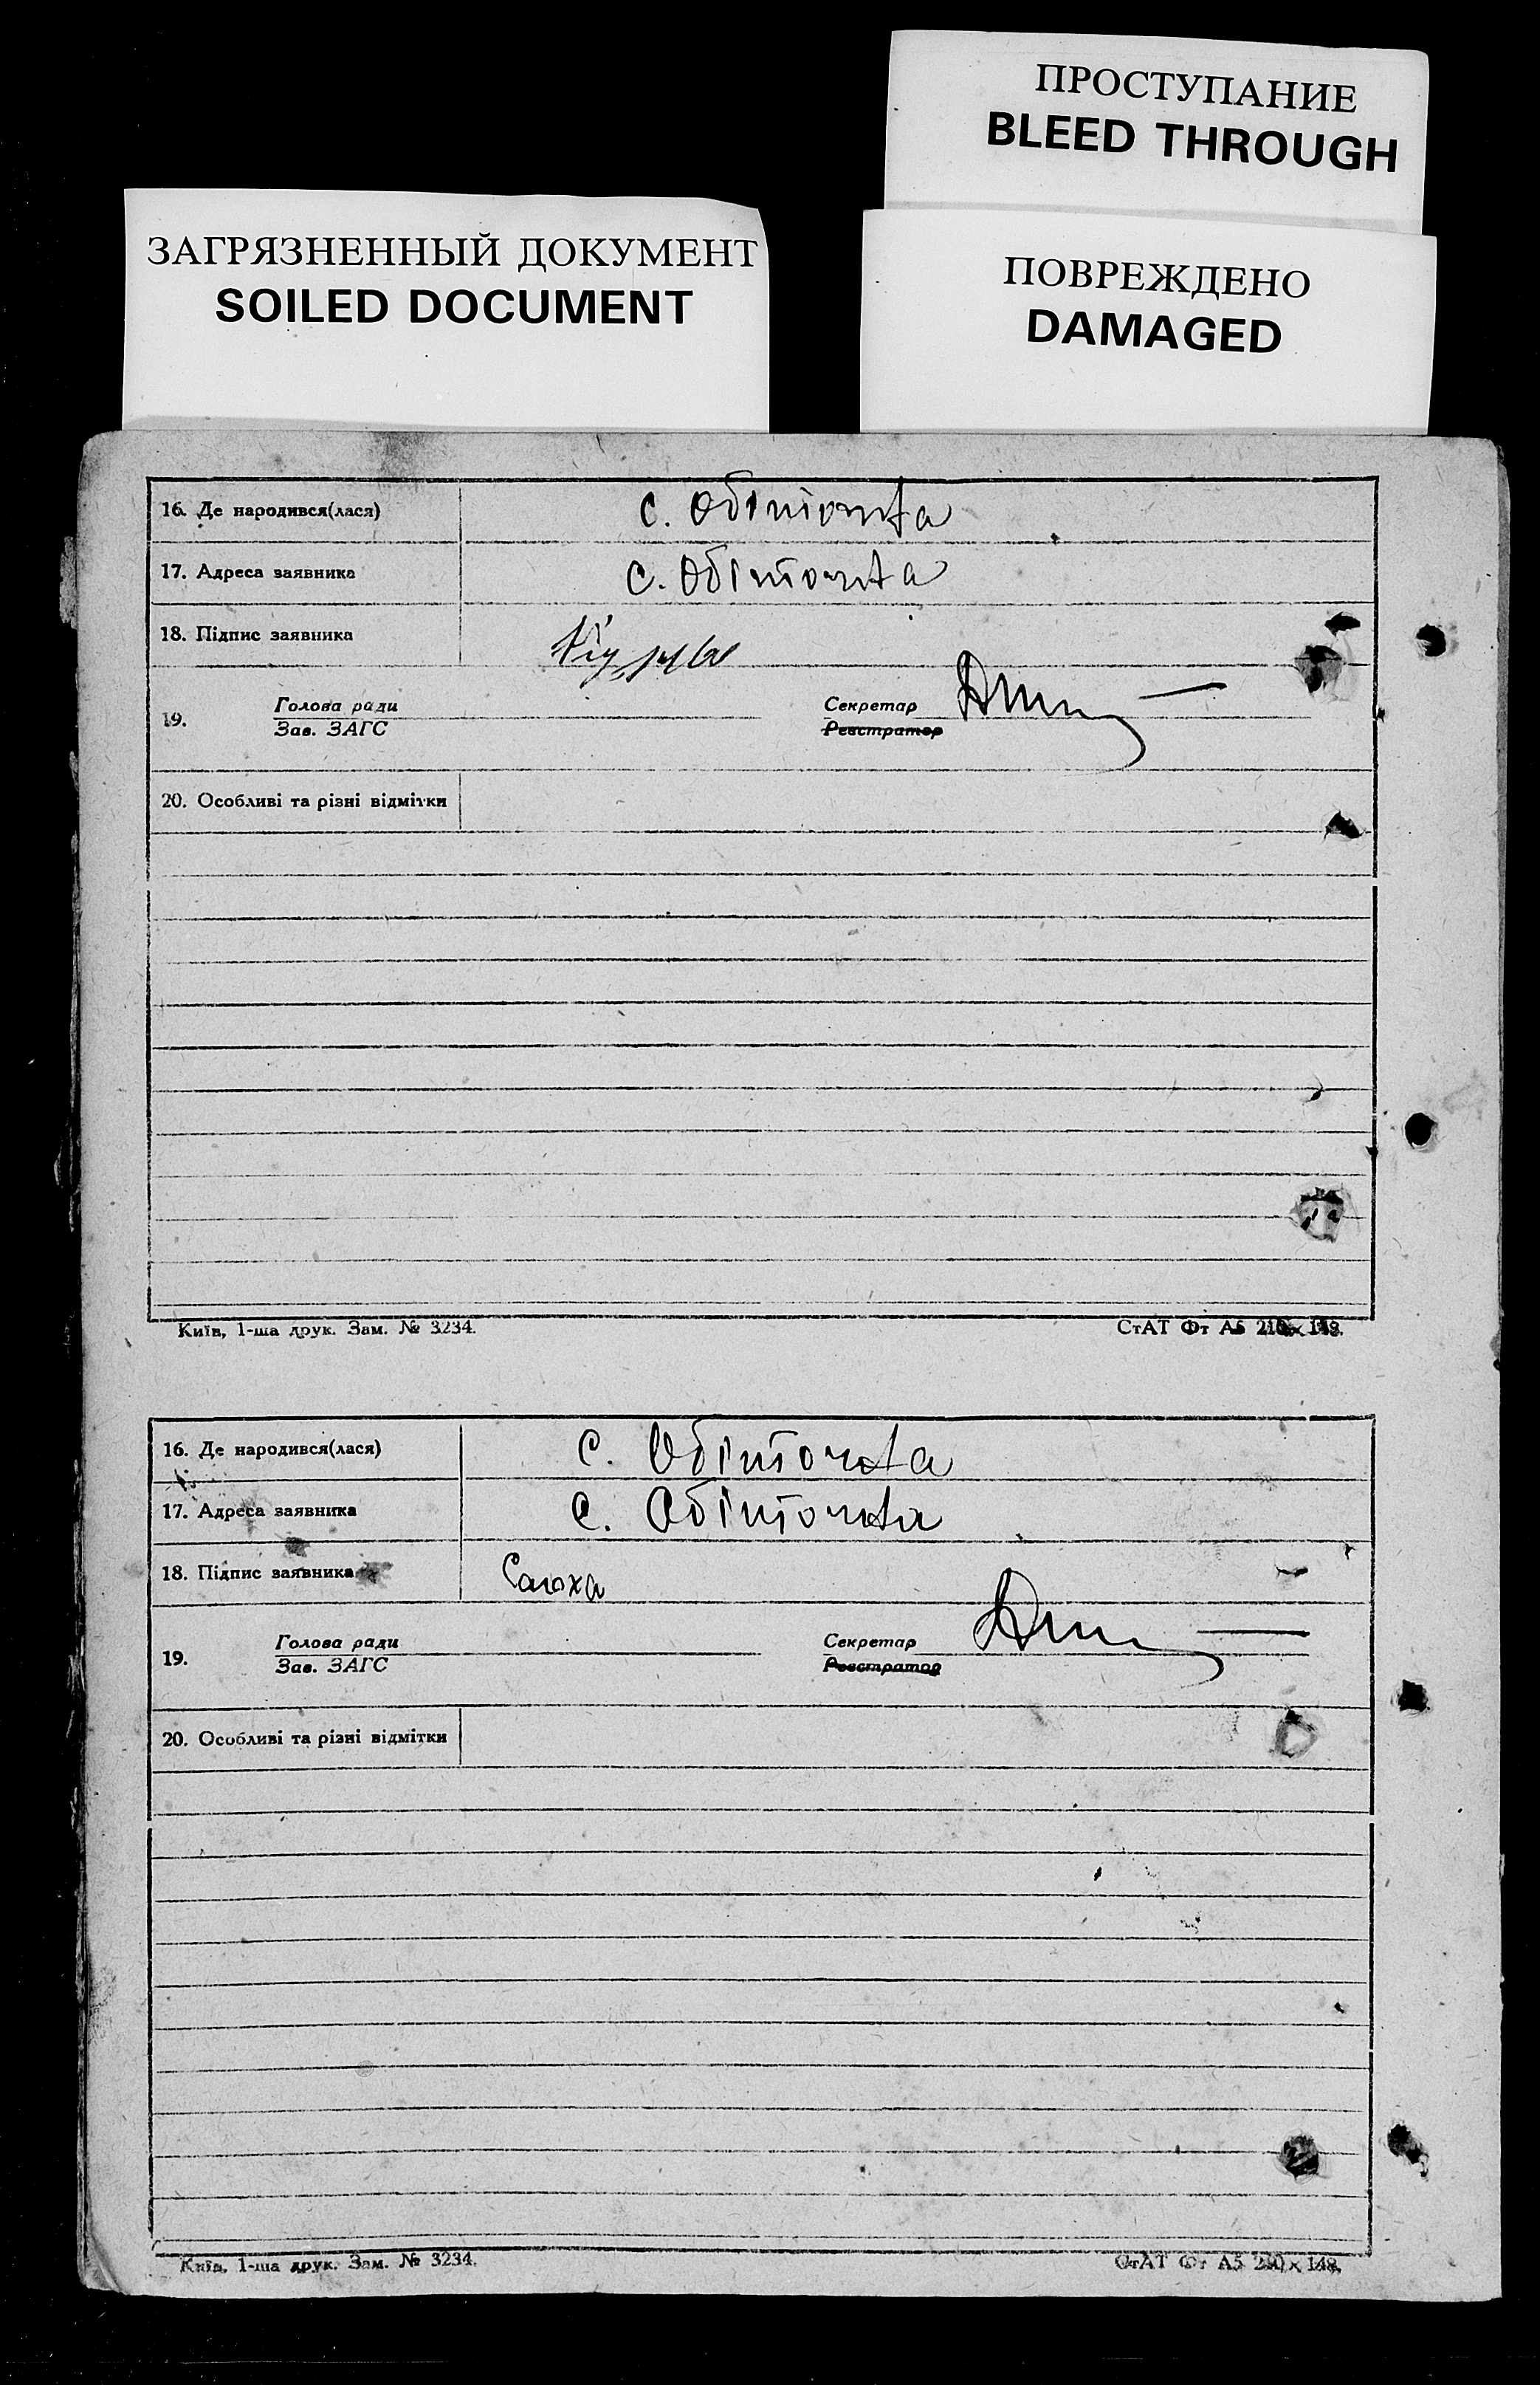 ПРОСТУПАНИЕ
BLEED THROUGH
ЗАГРЯЗНЕННЫЙ ДОКУМЕНТ
SOILED DOCUMENT
ПОВРЕЖДЕНО
DAMAGED
16. Де народився(лася) с. Обіточна
17. Адреса заявника с. Обіточна
18. Підпис заявника
19. Голова ради Секретар
Зав. ЗАГС Реєстратор
20. Особливі та різні відмітки
Київ, 1-ша друк. Зам. № 3234. СтАТ Фт А5 210×148.
16. Де народився(лася) с. Обіточна
17. Адреса заявника с. Обіточна
18. Підпис заявника
19. Голова ради Секретар
Зав. ЗАГС Реєстратор
20. Особливі та різні відмітки
Київ, 1-ша друк. Зам. № 3234. СтАТ Фт А5 210×148.